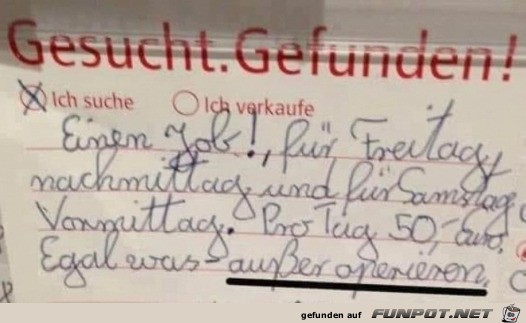 Gesucht. Gefunden!
Ich suche Ich verkaufe
Einen Job!, für Freitag,
nachmittag und für Samstag
Vormittag. Pro Tag 50,- Euro.
Egal was - außer operieren.
gefunden auf FUNPOT.NET